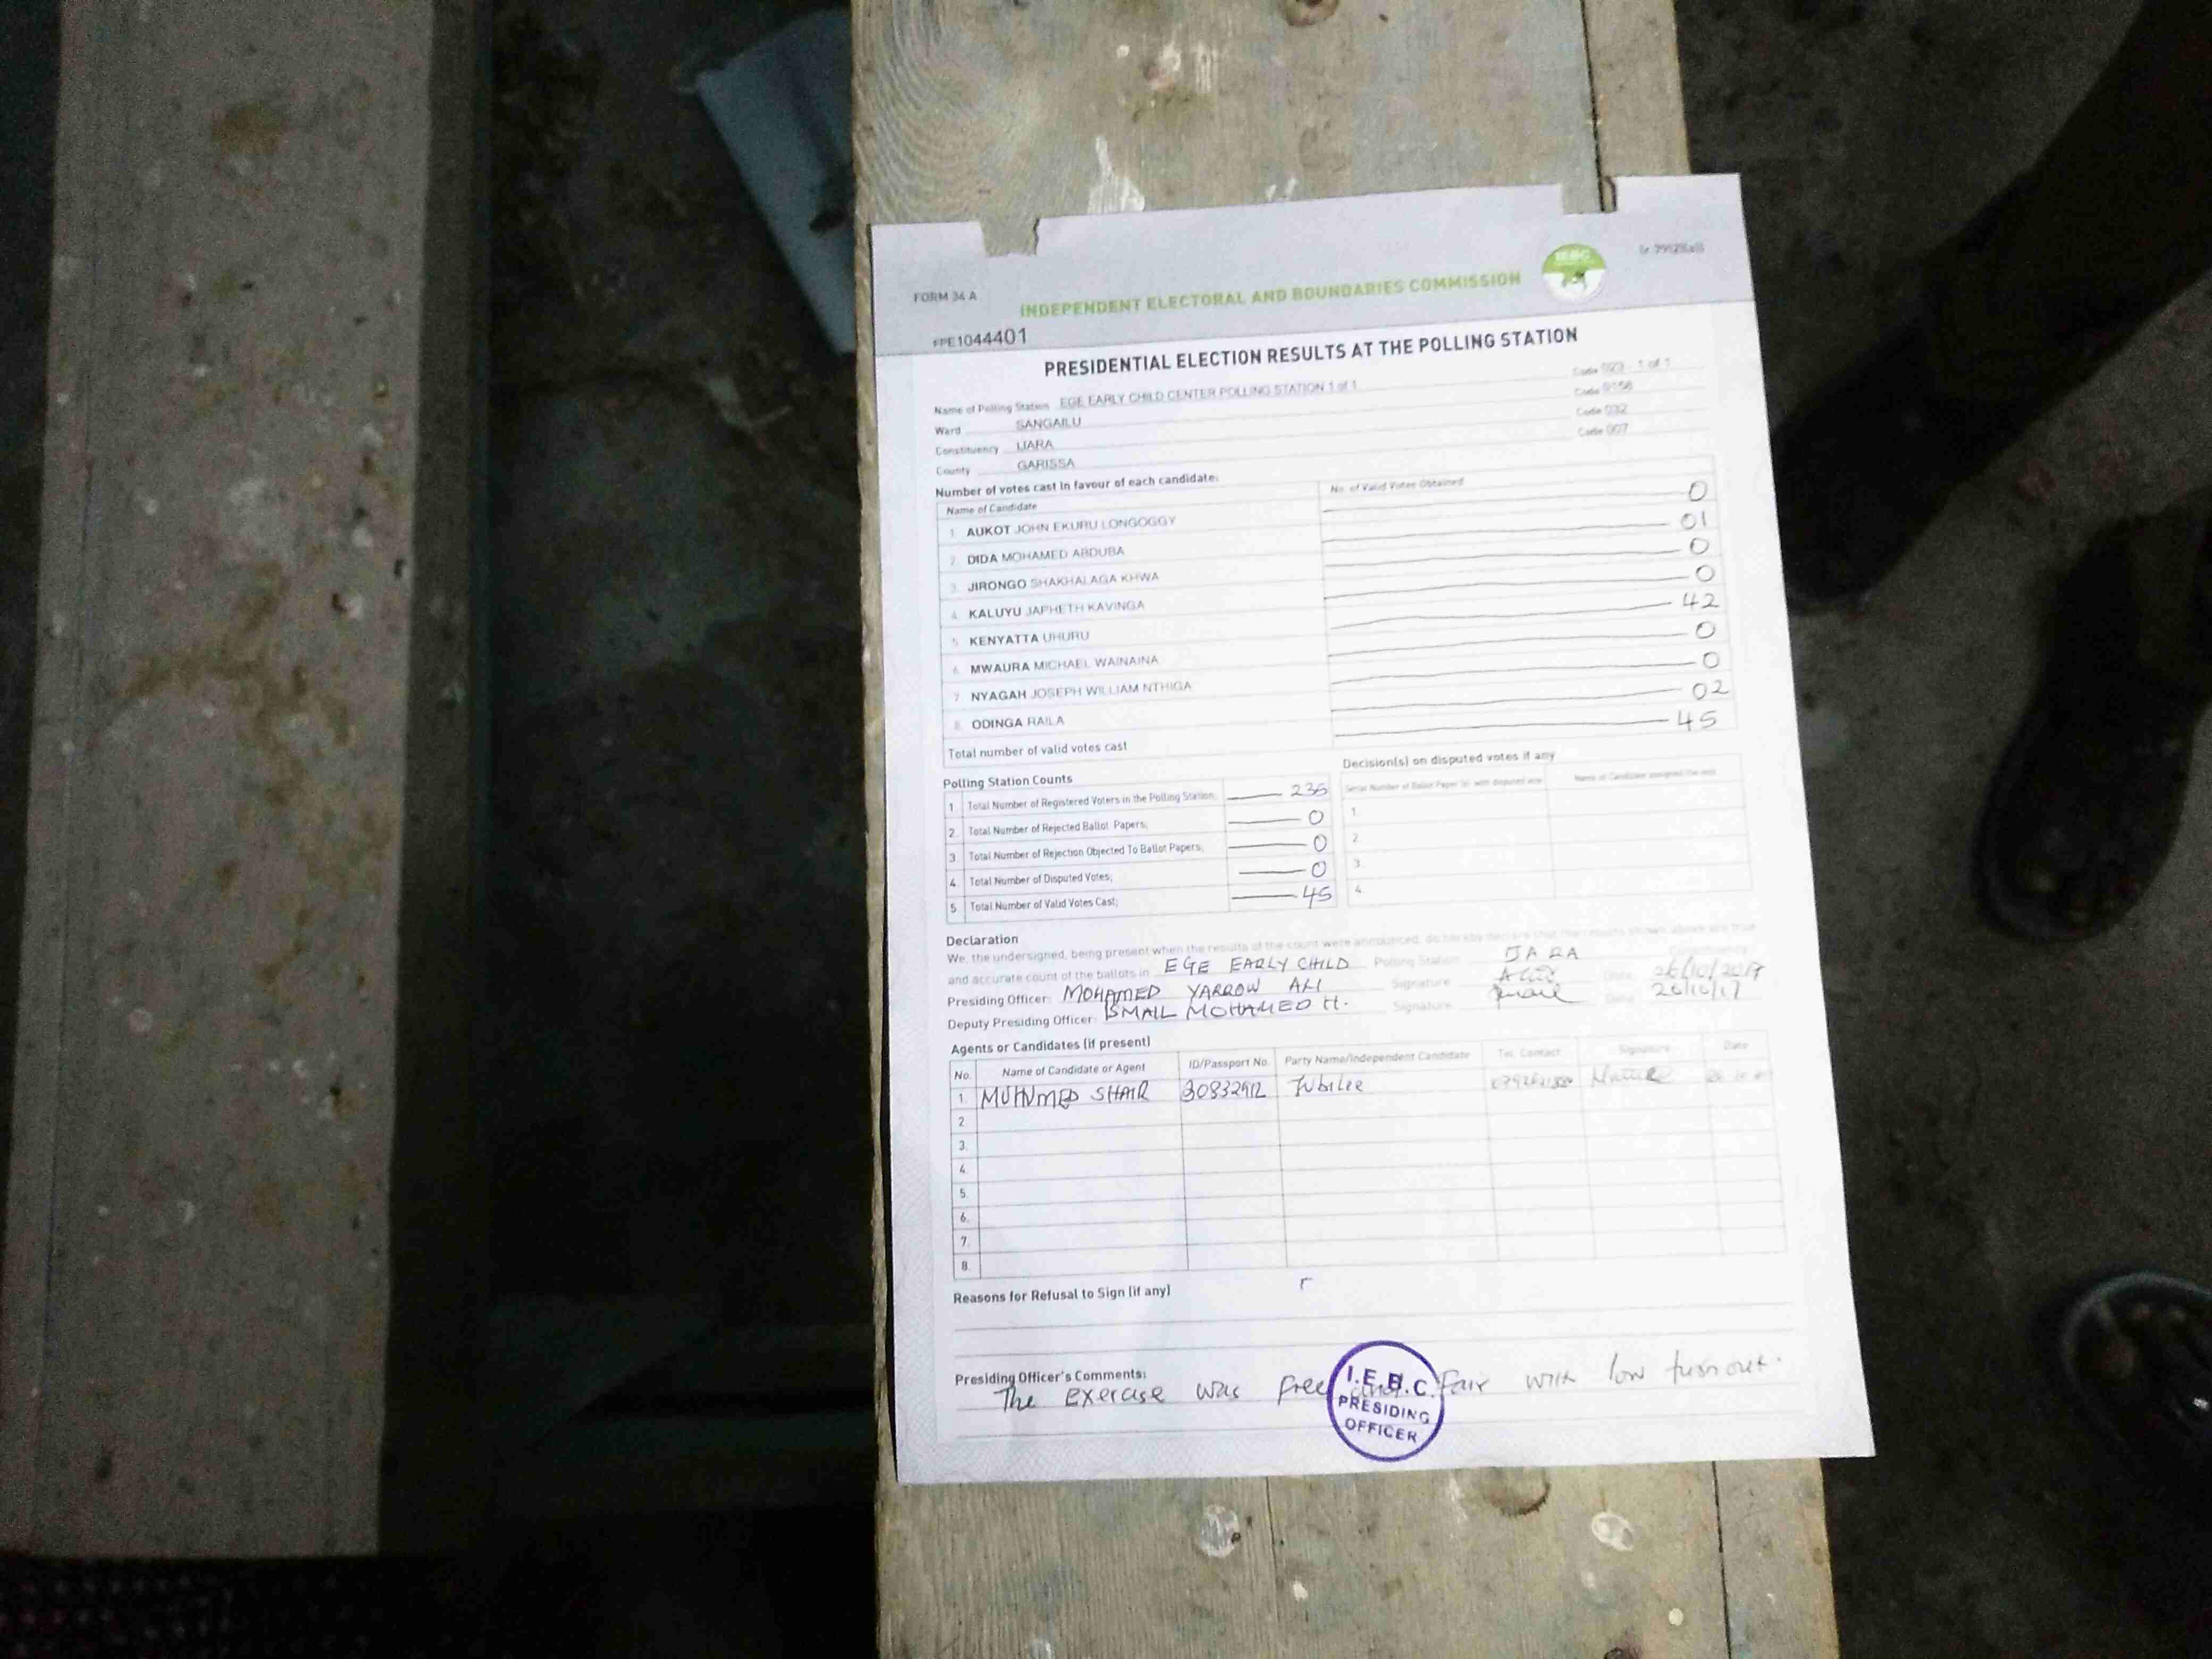 FORM 34 A
INDEPENDENT ELECTORAL AND BOUNDARIES COMMISSION
IEBC
PE1044401
PRESIDENTIAL ELECTION RESULTS AT THE POLLING STATION
Name of Polling Station EGE EARLY CHILD CENTER POLLING STATION 1 of 1 Code 023 1 of 1
Ward SANGAILU Code 0158
Constituency IJARA Code 032
County GARISSA Code 007
Number of votes cast in favour of each candidate:
Name of Candidate No. of Valid Votes Obtained
1. AUKOT JOHN EKURU LONGOGGY 0
2. DIDA MOHAMED ABDUBA 01
3. JIRONGO SHAKHALAGA KHWA 0
4. KALUYU JAPHETH KAVINGA 0
5. KENYATTA UHURU 42
6. MWAURA MICHAEL WAINAINA 0
7. NYAGAH JOSEPH WILLIAM NTHIGA 0
8. ODINGA RAILA 02
Total number of valid votes cast 45
Polling Station Counts
1. Total Number of Registered Voters in the Polling Station; 235
2. Total Number of Rejected Ballot Papers; 0
3. Total Number of Rejection Objected To Ballot Papers; 0
4. Total Number of Disputed Votes; 0
5. Total Number of Valid Votes Cast; 45
Decision(s) on disputed votes if any
Serial Number of Ballot Paper (s) with disputed vote Name of Candidate assigned the vote
1.
2.
3.
4.
Declaration
We, the undersigned, being present when the results of the count were announced, do hereby declare that the results shown above are true
and accurate count of the ballots in EGE EARLY CHILD Polling Station IJARA Constituency
Presiding Officer: MOHAMED YARROW ALI Signature Date 26/10/2017
Deputy Presiding Officer: ISMAIL MOHAMED H. Signature Date 26/10/17
Agents or Candidates (if present)
No. Name of Candidate or Agent ID/Passport No. Party Name/Independent Candidate Tel. Contact Signature Date
1. MUHUMED SHAIR 30832912 Jubilee
2.
3.
4.
5.
6.
7.
8.
Reasons for Refusal to Sign (if any)
Presiding Officer's Comments:
The exercise was free and fair with low turn out.
I.E.B.C.
PRESIDING
OFFICER